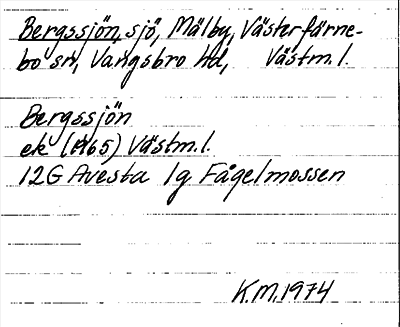 Bergssjön, sjö, Mälby, Västerfärne-
bo sn, Vangsbro hd, Västm.l.
Bergssjön
ek (A65) Västm.l.
12G Avesta 1g Fågelmossen
K.M. 1974